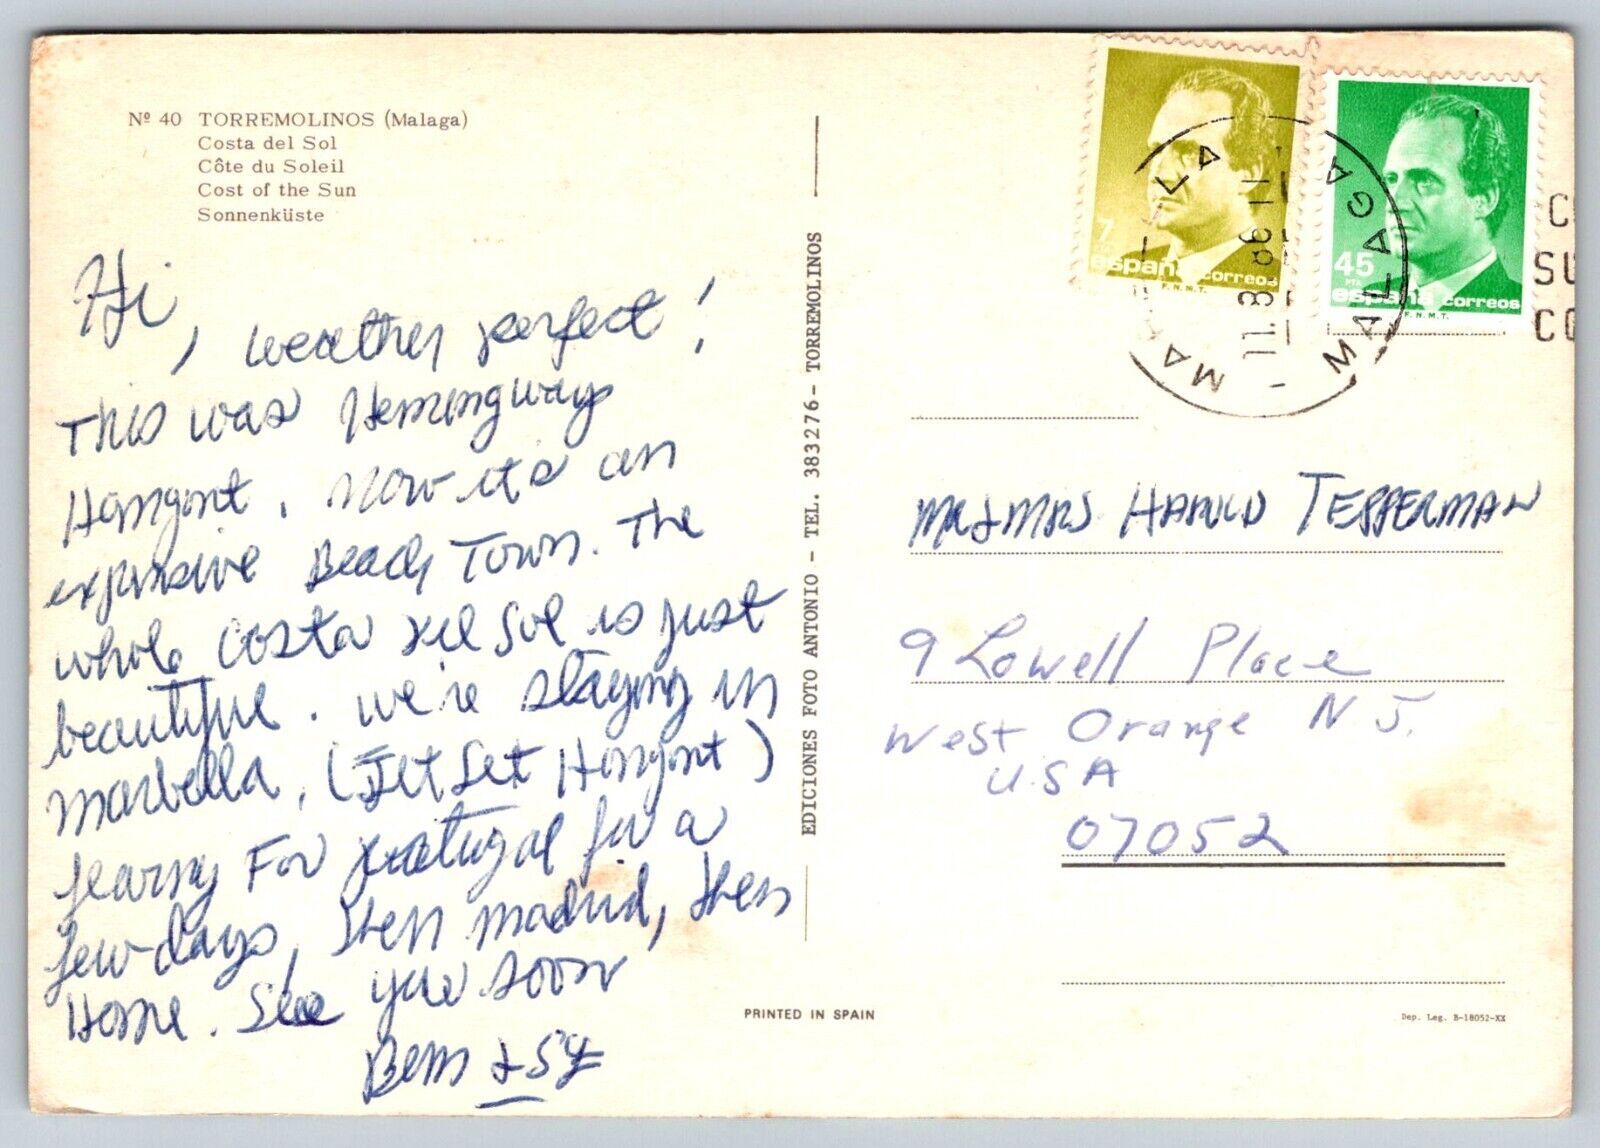 Nº 40 TORREMOLINOS (Malaga)
Costa del Sol
Côte du Soleil
Cost of the Sun
Sonnenküste
Hi, weather perfect!
This was Hemingways
Hangout. Now its an
expensive Beach Town. The
whole Costa del Sol is just
beautiful. We're staying in
Marbella, (Jet Set Hangout)
leaving For Portugal for a
few days, then Madrid, then
Home. See you soon
& Sy
EDICIONES FOTO ANTONIO - TEL. 383276 - TORREMOLINOS
PRINTED IN SPAIN
7
PTA
españa correos
F.N.M.T.
45
PTA
españa correos
F.N.M.T.
MALAGA
11.3 86 11
MALAGA
Mr & Mrs HAROLD TEPPERMAN
9 Lowell Place
West Orange N.J.
U.S.A
07052
Dep. Leg. B-18052-XX